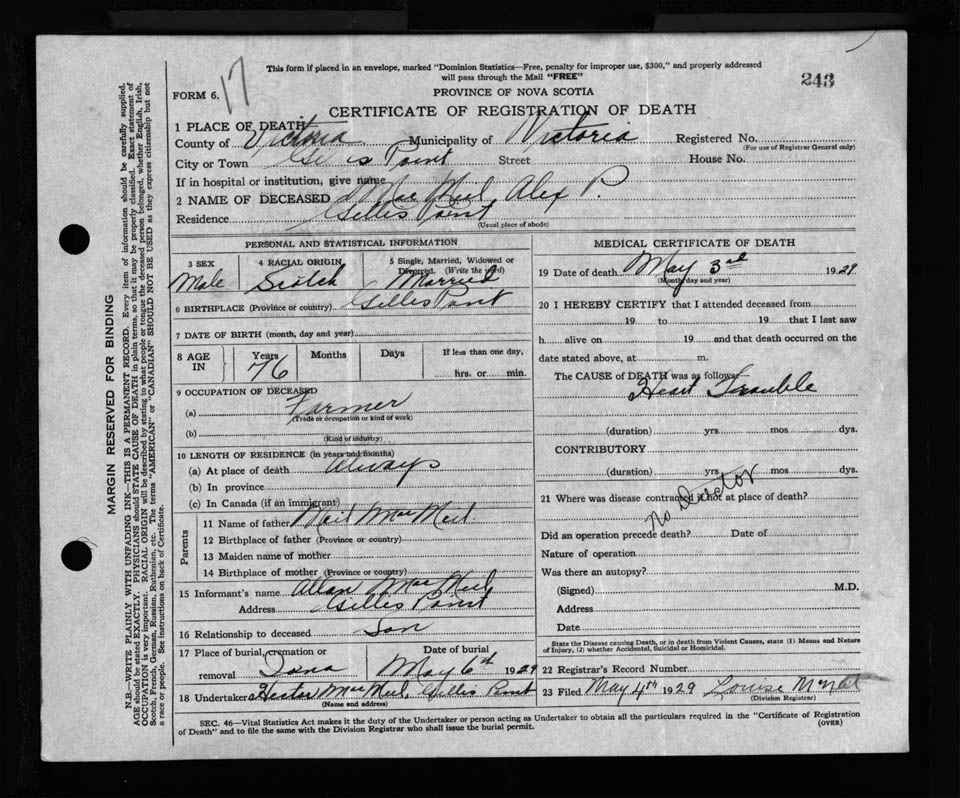 This form if placed in an envelope, marked "Dominion Statistics—Free, penalty for improper use, $300," and properly addressed
will pass through the Mail "FREE"
243
17
FORM 6.
PROVINCE OF NOVA SCOTIA
CERTIFICATE OF REGISTRATION OF DEATH
1 PLACE OF DEATH
County of Victoria Municipality of Victoria Registered No.
(For use of Registrar General only)
City or Town Point Street House No.
If in hospital or institution, give name
2 NAME OF DECEASED MacNeil Alex P.
Residence Gillis Point
(Usual place of abode)
PERSONAL AND STATISTICAL INFORMATION
3 SEX 4 RACIAL ORIGIN 5 Single, Married, Widowed or Divorced. (Write the word)
Male Scotch Married
6 BIRTHPLACE (Province or country) Gillis Point
7 DATE OF BIRTH (month, day and year)
8 AGE IN Years Months Days If less than one day,
76 hrs. or min.
9 OCCUPATION OF DECEASED
(a) Farmer
(Trade or occupation or kind of work)
(b)
(Kind of industry)
10 LENGTH OF RESIDENCE (in years and months)
(a) At place of death always
(b) In province
(c) In Canada (if an immigrant)
Parents
11 Name of father Neil MacNeil
12 Birthplace of father (Province or country)
13 Maiden name of mother
14 Birthplace of mother (Province or country)
15 Informant's name Allan MacNeil
Address Gillis Point
16 Relationship to deceased Son
17 Place of burial, cremation or removal Iona
Date of burial May 6th 1929
18 Undertaker Hector MacNeil, Gillis Point
(Name and address)
MEDICAL CERTIFICATE OF DEATH
19 Date of death May 3rd 1929
(Month, day and year)
20 I HEREBY CERTIFY that I attended deceased from
19 to 19 that I last saw
h alive on 19 and that death occurred on the
date stated above, at m.
The CAUSE of DEATH was as follows:
Heart Trouble
(duration) yrs. mos. dys.
CONTRIBUTORY
(duration) yrs. mos. dys.
21 Where was disease contracted if not at place of death?
No Doctor
Did an operation precede death? Date of
Nature of operation
Was there an autopsy?
(Signed) M.D.
Address
Date
State the Disease causing Death, or in death from Violent Causes, state (1) Means and Nature
of Injury, (2) whether Accidental, Suicidal or Homicidal.
22 Registrar's Record Number
23 Filed May 4th 1929 Louise
(Division Registrar)
SEC. 46—Vital Statistics Act makes it the duty of the Undertaker or person acting as Undertaker to obtain all the particulars required in the "Certificate of Registration
of Death" and to file the same with the Division Registrar who shall issue the burial permit. (OVER)
MARGIN RESERVED FOR BINDING
N.B.—WRITE PLAINLY WITH UNFADING INK—THIS IS A PERMANENT RECORD. Every item of information should be carefully supplied.
AGE should be stated EXACTLY. PHYSICIANS should STATE CAUSE OF DEATH in plain terms, so that it may be properly classified. Exact statement of
OCCUPATION is very important. RACIAL ORIGIN will be described by stating to what people or tongue the deceased person belonged, whether English, Irish,
Scotch, French, German, Russian, Ruthenian, etc. The terms "AMERICAN" or "CANADIAN" SHOULD NOT BE USED as they express citizenship but not
a race or people. See instructions on back of Certificate.